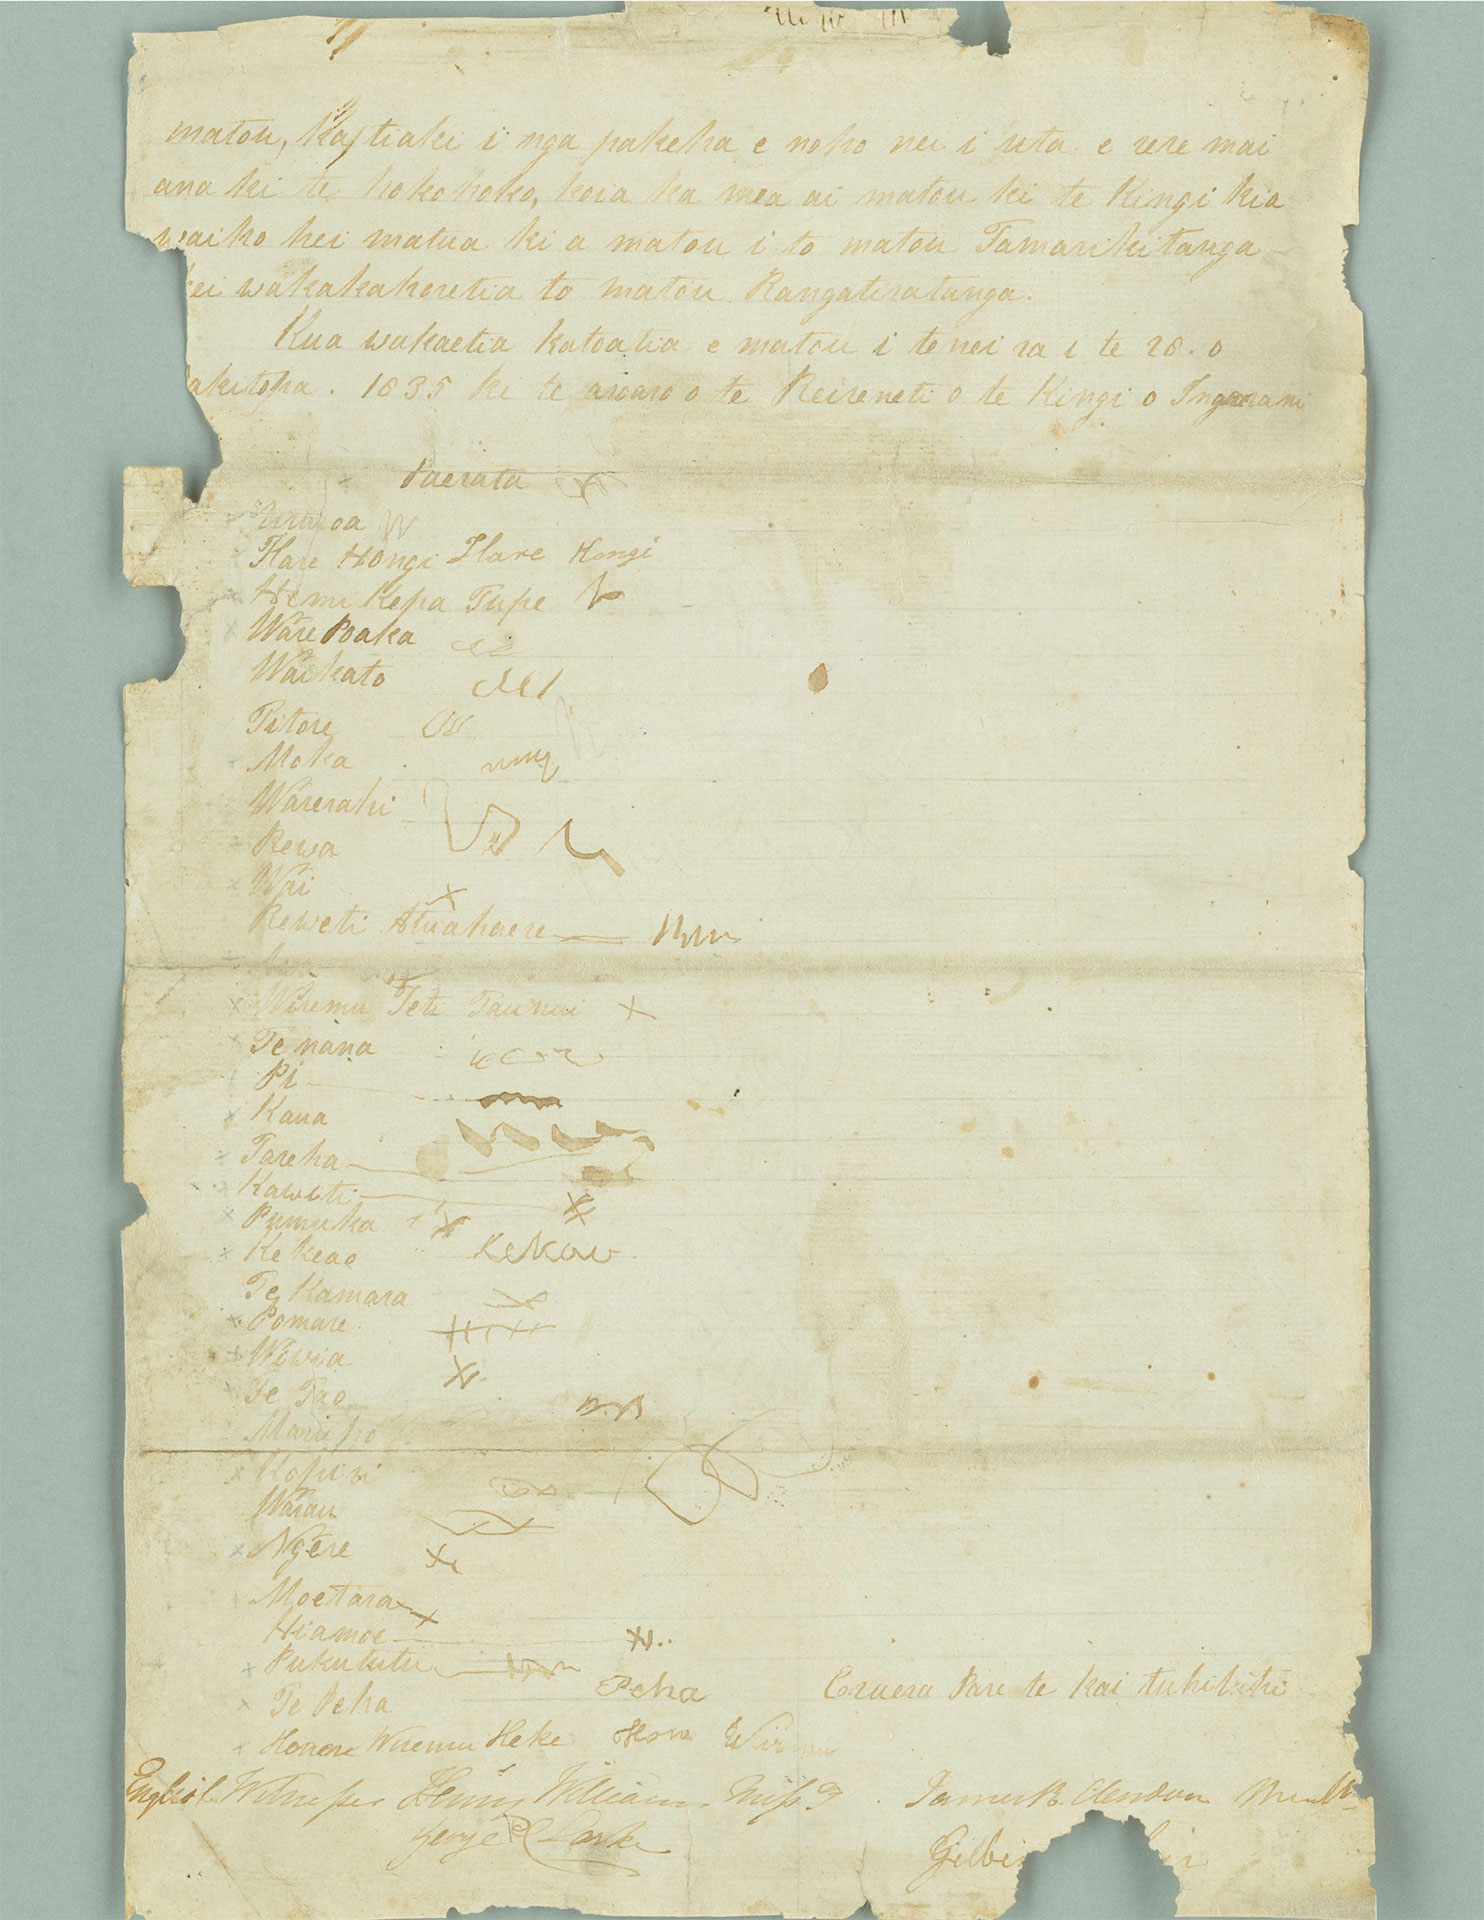 matou, ka tiaki i nga pakeha e noho nei i uta e rere mai
ana ki te hokohoko, koia ka mea ai matou ki te Kingi kia
waiho hei matua ki a matou i to matou Tamarikitanga
ei wakakahoretia to matou Rangatiratanga.
Kua wakaetia katoatia e matou i tenei ra i te 28. o
aketopa. 1835 ki te aroaro o te Reireneti o te Kingi o Ingarani
Paerata
Ururoa
Hare Hongi Hare Hongi
Hemi Kepa Tupe
Ware Poaka
Waikato
Titore
Moka
Warerahi
Rewa
Wai
Reweti Atuahaere
Wiremu Teti Taunui
Te nana
Pi
Kaua
Tareha
Kawiti
Pumuka
Kekeao Kekeao
Te Kamara
Pomare
Wiwia
Te Tao
Marupo
Kopiri
Warau
Ngere
Moetara
Hiamoe
Pukututu
Te Peha Peha
Eruera Pare te kai tuhituhi
Honere Wiremu Heke Hone Wiremu
English Witnesses Henry Williams Miss.y James R. Clendon
George Clarke
Gilbe